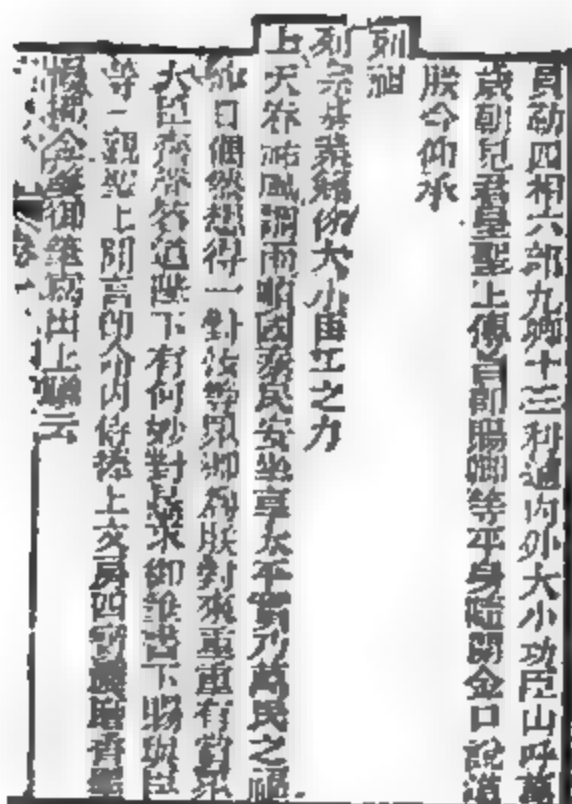 貝勒四相六部九卿十三科道內外大小功臣山呼萬
歲朝見君皇聖上傳旨卽賜卿等平身隨開金口說道
朕今仰承
列祖
列宗基業賴你大小臣工之力
上天眷祐風調雨順國泰民安坐享太平實乃萬民之福
日偶然想得一對汝等眾卿為朕對來重重有賞眾
大臣齊聲答道陛下有何妙對求御筆書下賜與臣
等一觀聖上聞言卽令內侍捧上文房四寶濃磨香墨
御筆寫出上聯云